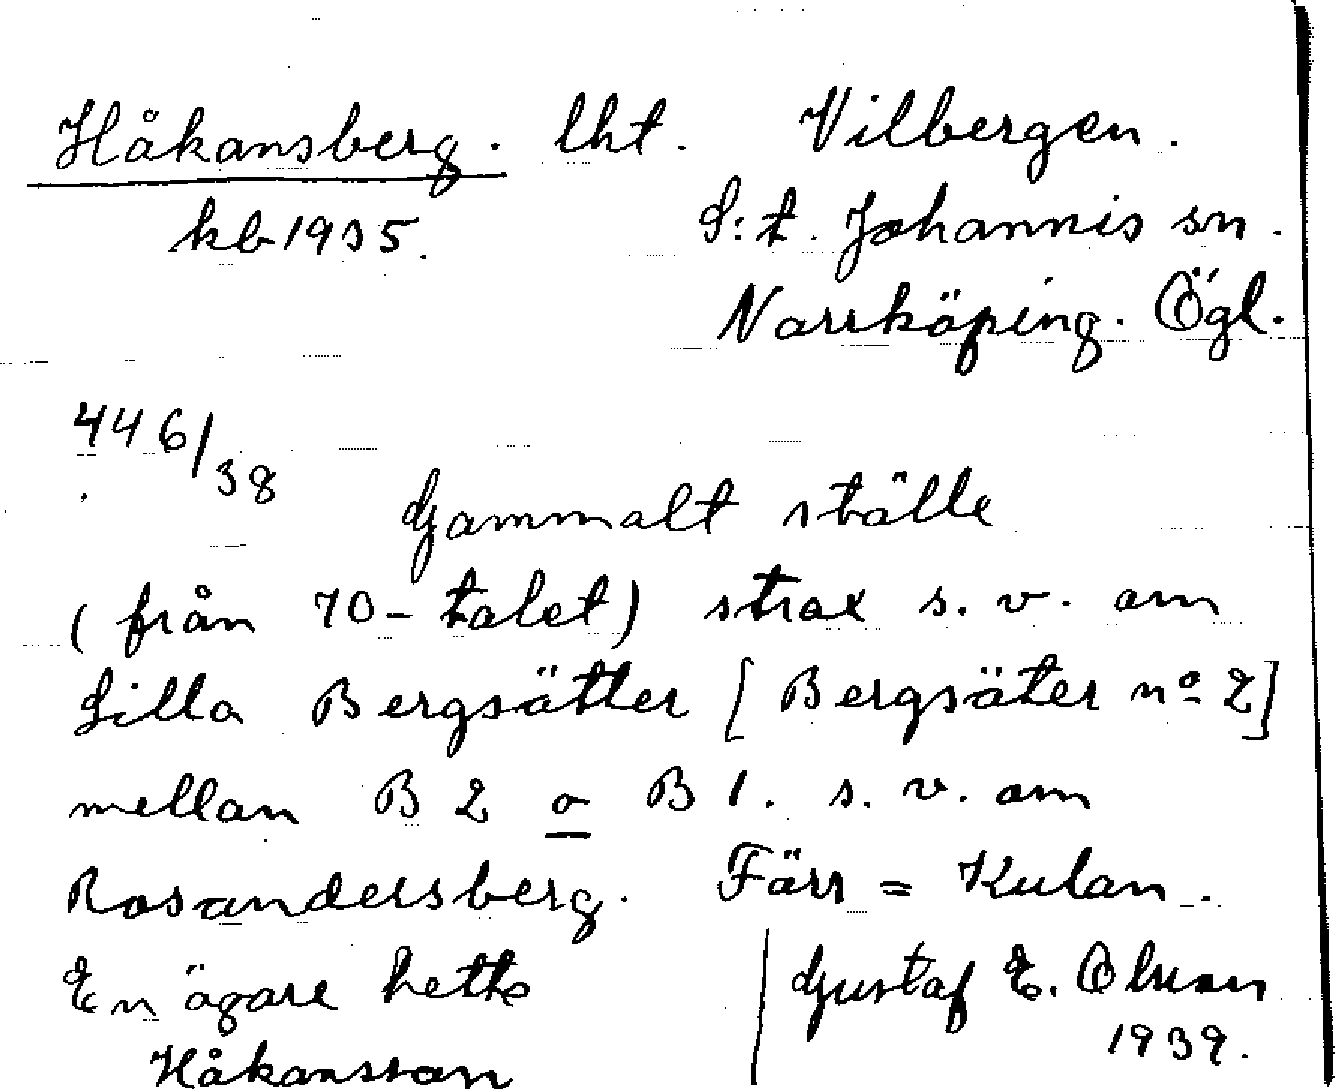 Håkansberg. lht. Vilbergen.
kb 1935. S:t. Johannis sn.
Norrköping. Ögl.
446/38
Gammalt ställe
(från 70-talet) strax s.v. om
Lilla Bergsätter [Bergsäter nº 2]
mellan B 2 o B 1. s.v. om
Rosandersberg. Förr = Kulan.
En ägare hette Gustaf E. Olsson
Håkansson 1939.